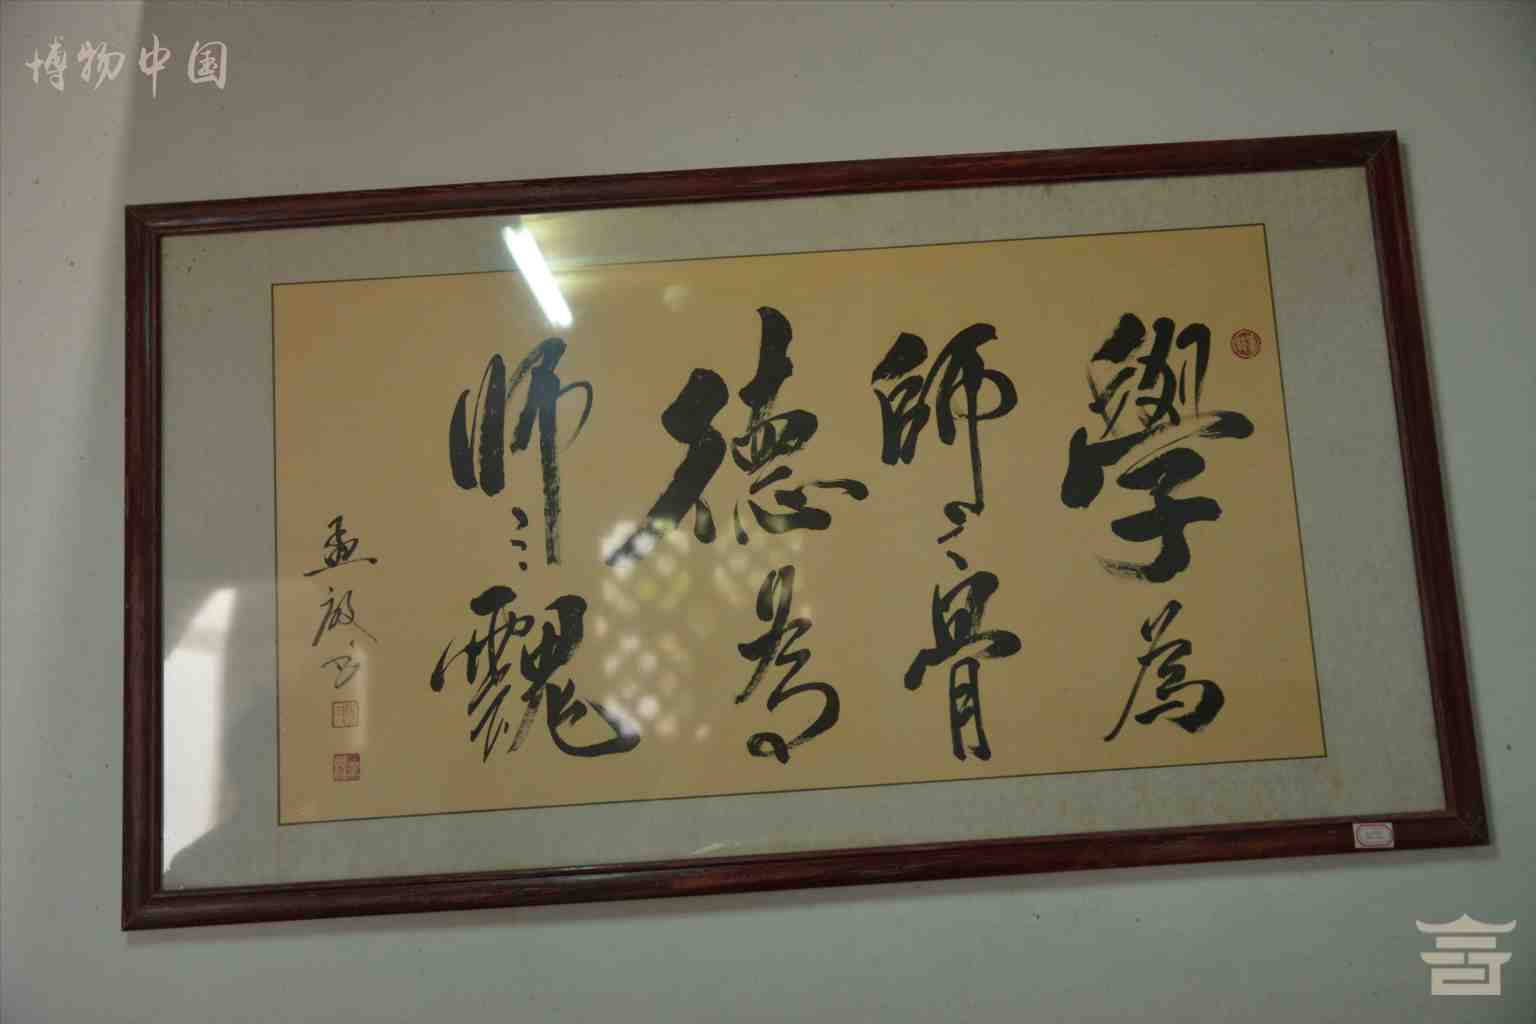 博物中国
學為
師之骨
德為
师之魂
孟 书